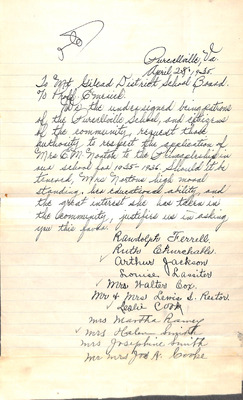 Purcellville, Va.
April 28th, 1935.
To Mt. Gilead District School Board.
℅ Proff. Emerick.
We the undersigned being patrons
of the Purcellville School, and citizens
of the community, request those
authority to respect the application of
Mrs E. M. Norton to the Principalship in
our school for 1935-1936. Should it be
tenured, Mrs Nortons high moral
standing, her educational ability, and
the great interest she has taken in
the Community, justifies us in asking
you this favor.
Randolph Ferrell
Ruth
Arthur Jackson
Louise Lassiter
Mrs Walter Cox.
Mr & Mrs Lewis S. Rector.
Leslie Cook
Mrs Martha Raney
Mrs Helen Smith
Mrs Josephine Smith
Mr Mrs Jos A. Cooke